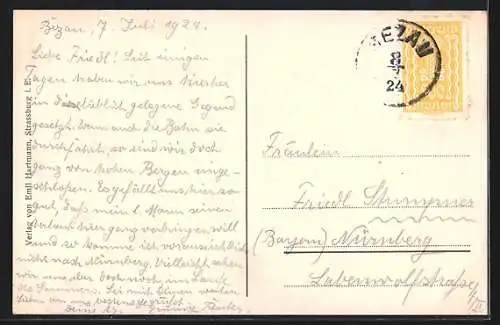 Bezau, 7. Juli 1924.
Liebe Friedl! Seit einigen
Tagen haben wir uns hierher
in die lieblich gelegene Gegend
gesetzt. Wenn auch die Bahn sie
durchfährt, so sind wir doch
ganz von hohen Bergen einge-
schlossen. Es gefällt uns hier so
gut, daß mein l. Mann seinen
Urlaub hier ganz verbringen will
und so komme ich voraussichtlich
nicht nach Nürnberg. Vielleicht sehen
wir uns aber doch noch im Laufe
des Sommers. Sei mit Deinen
Lieben von uns bestens gegrüßt
Deine
Verlag von Emil Hartmann, Strassburg i. E.
BEZAU
24
Fräulein
Friedl
(Bayern) Nürnberg
Labenwolfstraße